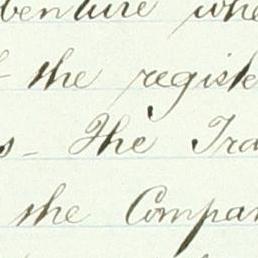 benture whe
the registe
s - The Tra
the Compan